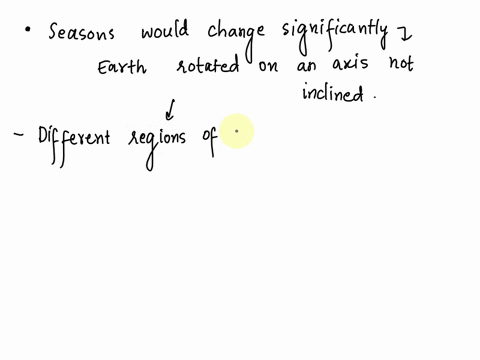 • Seasons would change significantly ↴
Earth rotated on an axis not
inclined.
↓
- Different regions of